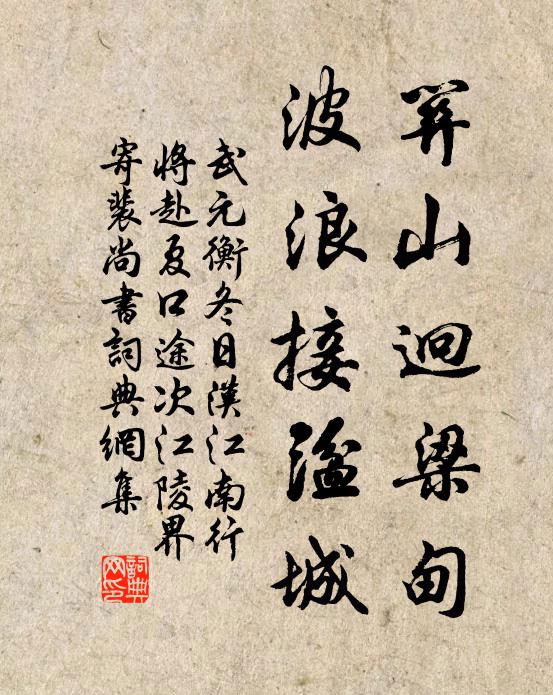 關山迴梁甸
波浪接湓城
武元衡冬日漢江南行
將赴夏口途次江陵界
寄裴尚書詞典網集
詞典
网印